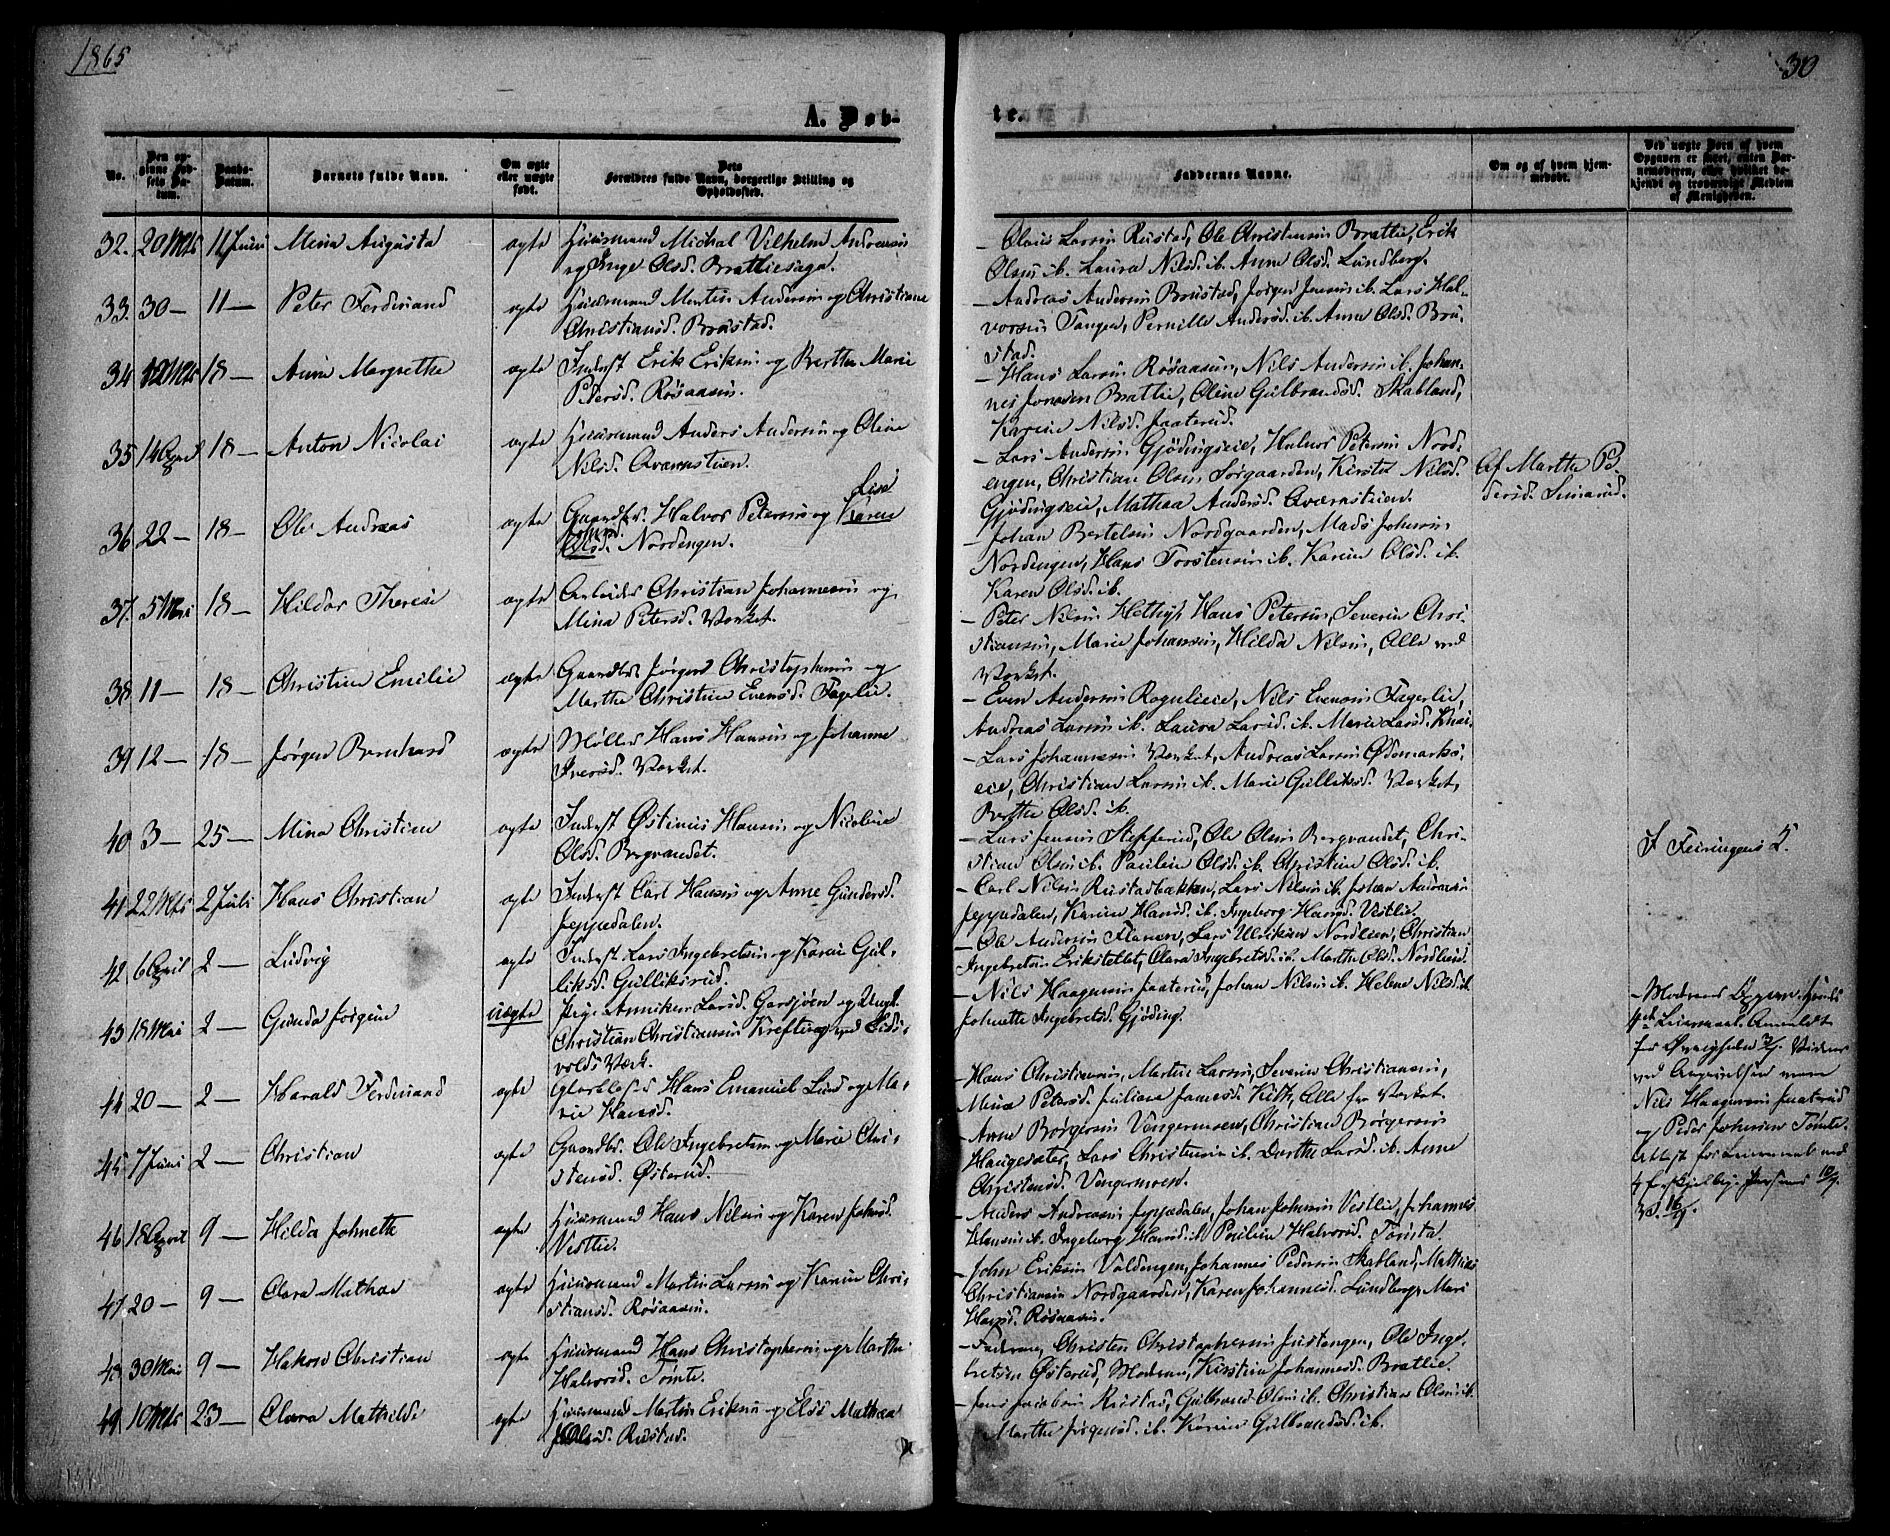 1865
30
A. Døb-
te.
No.
Den op-
givne Fød-
sels Da-
tum.
Daabs-
Datum.
Barnets fulde Navn.
Om ægte
eller uægte
født.
Dets
Forældres fulde Navn, borgerlige Stilling og
Opholdssted.
Faddernes Navne.
Om og af hvem hjem-
medøbt.
Ved uægte Børn af hvem
Opgaven er skeet, enten Bar-
nemoderen, eller hvilket be-
kjendt og troværdigt Medlem
af Menigheden.
32. 20 Mts 11 Juni Mina Augusta ægte Huusmand Michal Vilhelm Andersen
og Inge Olsd. Bratliesaga.
- Olaus Larsen Rustad, Ole Christensen Bratlie, Erik
Olsen ib. Laura Nilsd. ib. Anne Olsd. Lundberg.
33. 30 — 11 — Peter Ferdinand ægte Huusmand Martin Andersen og Christiane
Christiansd. Brustad.
- Andreas Andersen Brustad, Jørgen Jensen ib. Lars Hal-
vorsen Tangen, Pernille Andersd. ib. Anne Olsd. Bru-
stad.
34 12 Mts 18 — Anne Margrethe ægte Inderst Erik Eriksen og Berthe Marie
Pedersd. Røsaasen.
- Hans Larsen Røsaasen, Nils Andersen ib. Johan-
nes Jonsen Bratlie, Oline Gulbrandsd. Skabland,
Karine Nilsd. Faaterud.
35 14 April 18 — Anton Nicolai ægte Huusmand Anders Andersen og Oline
Nilsd. Qværnstuen.
- Lars Andersen Gjødingseie, Halvor Petersen Nord-
engen, Christian Olsen Sørgaarden, Kirstie Nilsd.
Gjødingseie, Mathea Andersd. Qværnstuen.
Af Marthe Pe-
dersd. Simarud.
36 22 — 18 — Ole Andreas ægte Gaardbr. Halvor Petersen og Karen
Lise
Olsd. Nordengen.
- Johan Bertelsen Nordgaarden, Mads Johnsen
Nordengen, Hans Torstensen ib. Karen Olsd. ib.
Karen Olsd. ib.
37. 5 Mai 18 — Hildar Therese ægte Arbeider Christian Johannesen og
Mina Petersd. Værket.
- Peter Nilsen Hethys, Hans Petersen, Severin Chri-
stiansen, Marie Johansen, Hilda Nilsen, Alle ved
Værket.
38. 11 — 18 — Christine Emilie ægte Gaardbr. Jørgen Christophersen og
Marthe Christine Evensd. Fagerlie.
- Even Andersen Roguleie, Nils Evensen Fagerlie,
Andreas Larsen ib. Laura Larsd. ib. Maria Larsd.
39. 12 — 18 — Jørgen Bernhard ægte Møller Hans Hansen og Johanne
Iversd. Værket.
- Lars Johannesen Værket, Andreas Larsen Ødemarks-
eie, Christian Larsen ib. Marie Gulliksd. Værket,
Berthe Olsd. ib.
40 3 — 25 — Mina Christine ægte Inderst Østinius Hansen og Nicoline
Olsd. Bergvandet.
- Lars Jensen Stefferud, Ole Olsen Bergvandet, Chri-
stian Olsen ib. Pauline Olsd. ib. Christine Olsd. ib.
I Feiringens S.
41 22 Mts 2 Juli Hans Christian ægte Inderst Carl Hansen og Anne Gundersd.
Jeppedalen.
- Carl Nilsen Rustadbakken, Lars Nilsen ib. Johan Andersen
Jeppedalen, Karine Hansd. ib. Ingeborg Hansd. Vestlie.
42 6 April 2 — Ludvig ægte Inderst Lars Ingebretsen og Karen Gul-
liksd. Gulliksrud.
- Ole Andersen Flaaen, Lars Ulriksen Nordlien, Christian
Ingebretsen Erikstellet, Clara Ingebretsd. ib. Marthe Olsd. Nordlien.
43 18 Mai 2 — Gunda Jørgine uægte Pige Anniken Larsd. Garsjøen og Ungk.
Christian Christiansen Krefting ved Eids-
volds Værk.
- Nils Haagensen Faaterud, Johan Nilsen ib. Helene Nilsd. ib.
Johnette Ingebretsd. Gjøding.
- Moderens Opgivn.
4de Leiermaal. Anmeldt
for Øvrigheden. Vidner
ved Angivelsen vare
Nils Haagensen Faaterud
og Peder Johnsen Tømte.
Attest for Leiermaal
44 20 — 2 — Harald Ferdinand ægte Glasblæser Hans Emanuel Lund og Ma-
rie Hansd.
- Hans Christiansen, Martin Larsen, Severin Christiansen,
Mina Petersd. Juliane Jansd. Kith, Alle fra Værket.
45 7 Juni 2 — Christian ægte Gaardbr. Ole Ingebretsen og Marie Chri-
stensd. Østerud.
- Arne Børgersen Vengermoen, Christian Børgersen
Haugesæter, Lars Christensen ib. Dorthe Larsd. ib. Anne
Christensd. Vengermoen.
46 18 April 9 — Hilda Johnette ægte Huusmand Hans Nilsen og Karen Johnsd.
Vestlie.
- Anders Andreasen Jeppedalen, Johan Johnsen Vestlie, Johannes
Hansen ib. Ingeborg Hansd. ib. Pauline Halvorsd. Tømte.
47. 20 — 9 — Clara Mathea ægte Huusmand Martin Larsen og Karine Chri-
stiansd. Røsaasen.
- John Eriksen Valdengen, Johannes Pedersen Skabland, Mathias
Christiansen Nordgaarden, Karen Johannesd. Lundberg, Mari
Hansd. Røsaasen.
48 30 Mai 9 — Hakon Christian ægte Huusmand Hans Christophersen og Marthe
Halvorsd. Tømte.
- Faderen, Christen Christophersen Justengen, Ole Inge-
bretsen Østerud, Moderen, Kirstine Johannesd. Bratlie.
49. 10 Mts 23 — Clara Mathilde ægte Huusmand Martin Eriksen og Else Mathea
Olsd. Rustad.
- Jens Jacobsen Rustad, Gulbrand Olsen ib. Christian Olsen ib.
Marthe Jørgensd. ib. Karine Gulbrandsd. ib.